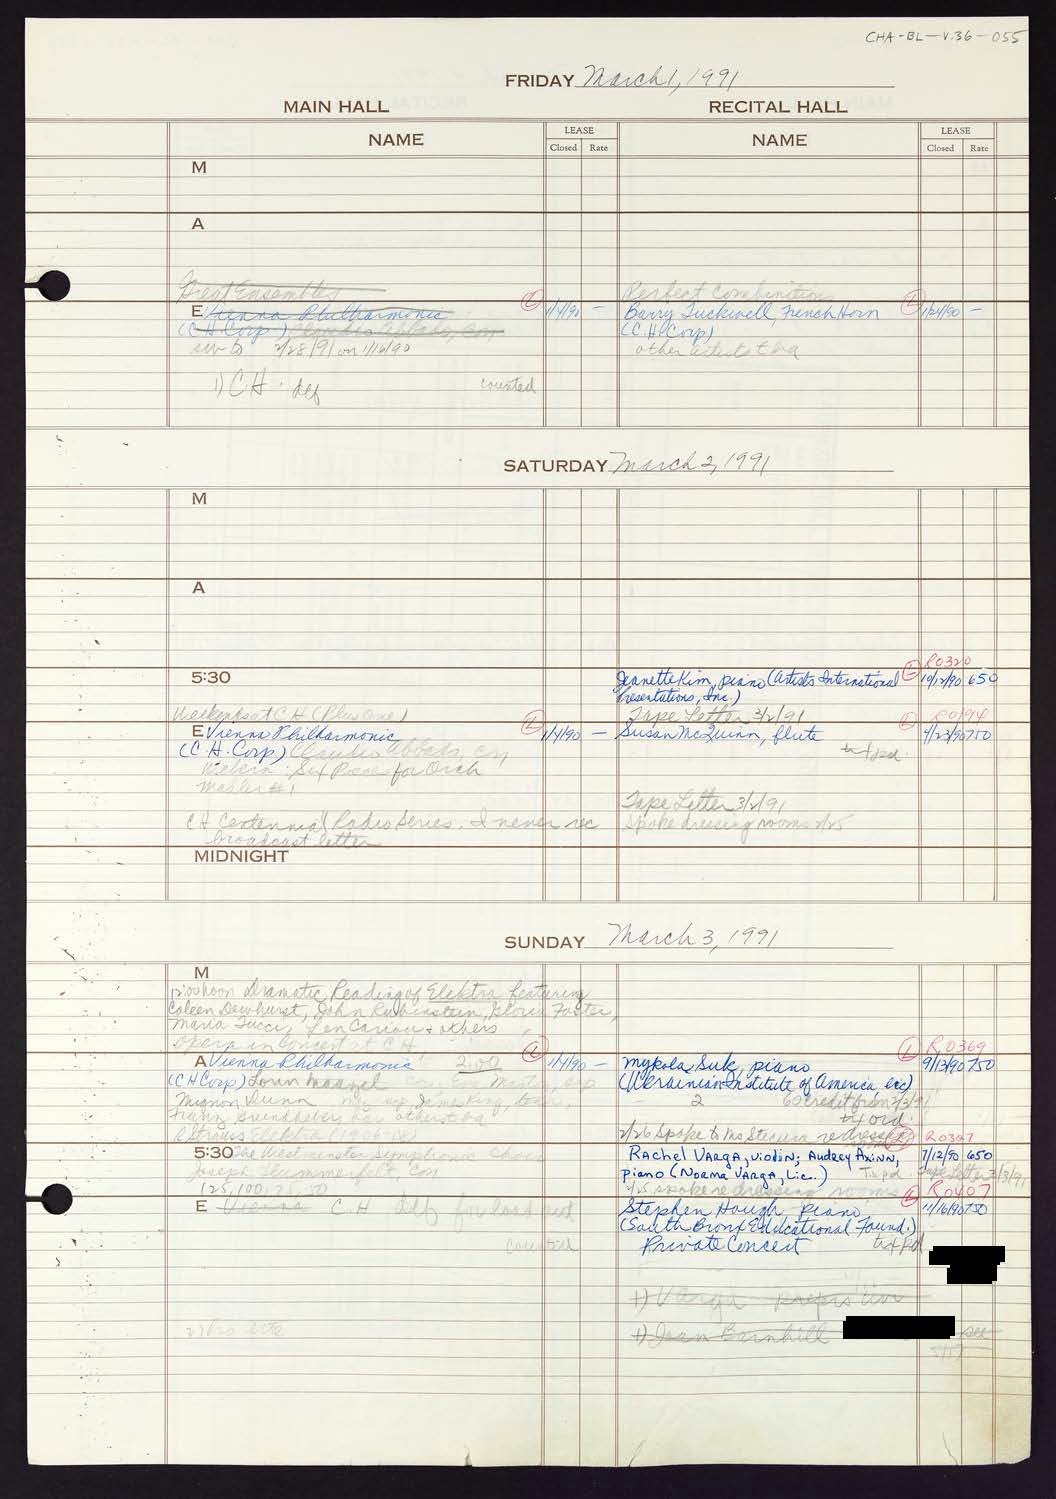 CHA-BL-V.36-055
FRIDAY March 1, 1991
MAIN HALL RECITAL HALL
NAME LEASE NAME LEASE
Closed Rate Closed Rate
M
A
Great Ensembles Perfect Combinations
E Vienna Philharmonic L 1/4/90 — Barry Tuckwell, French Horn L 1/24/90 —
(C.H. Corp) Claudio Abbado, Con (C.H. Corp)
2/28/91 on 1/16/90 other artists tba
1) C.H. def counted
SATURDAY March 2, 1991
M
A
R0320
5:30 Jeanette Kim, piano (Artists International L 10/12/90 650
Presentations, Inc.)
Weekends at C H (Plus One) Tape Letter 3/2/91 R0194
E Vienna Philharmonic L 1/4/90 — Susan McQuinn, flute L 9/23/90 750
(C.H. Corp) Claudio Abbado, con
Webern: Six Pieces for Orch
Mahler #1
Tape Letter 3/2/91
CH Centennial Radio Series. I never rec Spoke dressing rooms 2/25
broadcast letter
MIDNIGHT
SUNDAY March 3, 1991
M
12:00 noon Dramatic Reading of Elektra featuring
Coleen Dewhurst, John Rubinstein, Gloria Foster,
Maria Tucci, Len Cariou & others
Opera in Concert at C H R0369
A Vienna Philharmonic 2:00 L 1/4/90 — Mykola Suk, piano L 9/13/90 750
(CH Corp) Lorin Maazel con Eva Marton, sop (Ukrainian Institute of America inc)
Mignon Dunn James King, ten, 2 60 credit from 2/3/91
Franz Grundheber bar others tba
R Strauss Elektra 2/26 Spoke to Ms Stecura re dress R0397
5:30 The Westminster Symphonic Choir Rachel Varga, violin; Audrey Axinn, 7/12/90 650
Joseph Flummerfelt, Con piano (Norma Varga, Lic.) Tape Letter 3/3/91
125, 100, 75, 50 spoke re dressing rooms L R0407
E Vienna C.H def for load out Stephen Hough piano 11/16/90 750
(South Bronx Educational Found.)
counted Private Concert
1) Varga
1) Jean Barnhill see